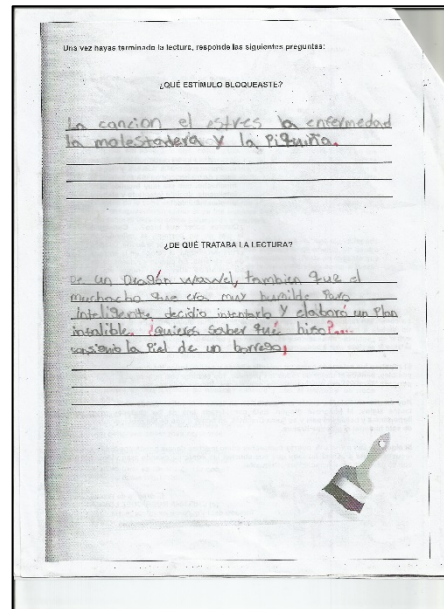 Una vez hayas terminado la lectura, responde las siguientes preguntas:
¿QUÉ ESTÍMULO BLOQUEASTE?
La cancion el estres la enfermedad
la molestadera y la Piquiña.
¿DE QUÉ TRATABA LA LECTURA?
De un Dragón wawel, tambien que el
muchacho que era muy humilde Pero
inteligente decidio intentarlo Y elaboró un Plan
infalible. ¿quieres saber qué hiso?....
consiguio la Piel de un borrego,